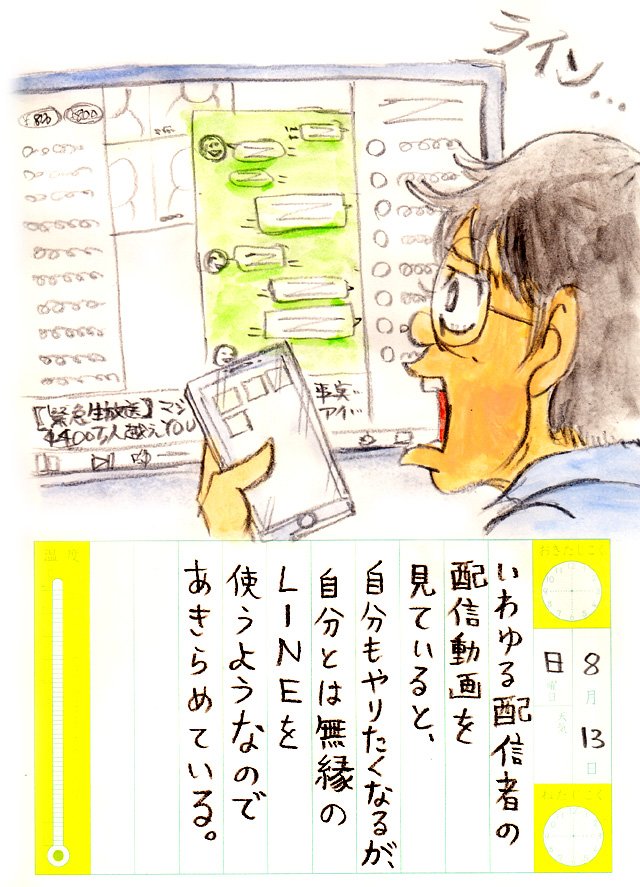 ライン…
【緊急生放送】マジ
4400万人越えYOU
事実…
アイ…
温度
おきたじこく
8月13日
日曜日
天気
ねたじこく
いわゆる配信者の
配信動画を
見ていると、
自分もやりたくなるが、
自分とは無縁の
LINEを
使うようなので
あきらめている。